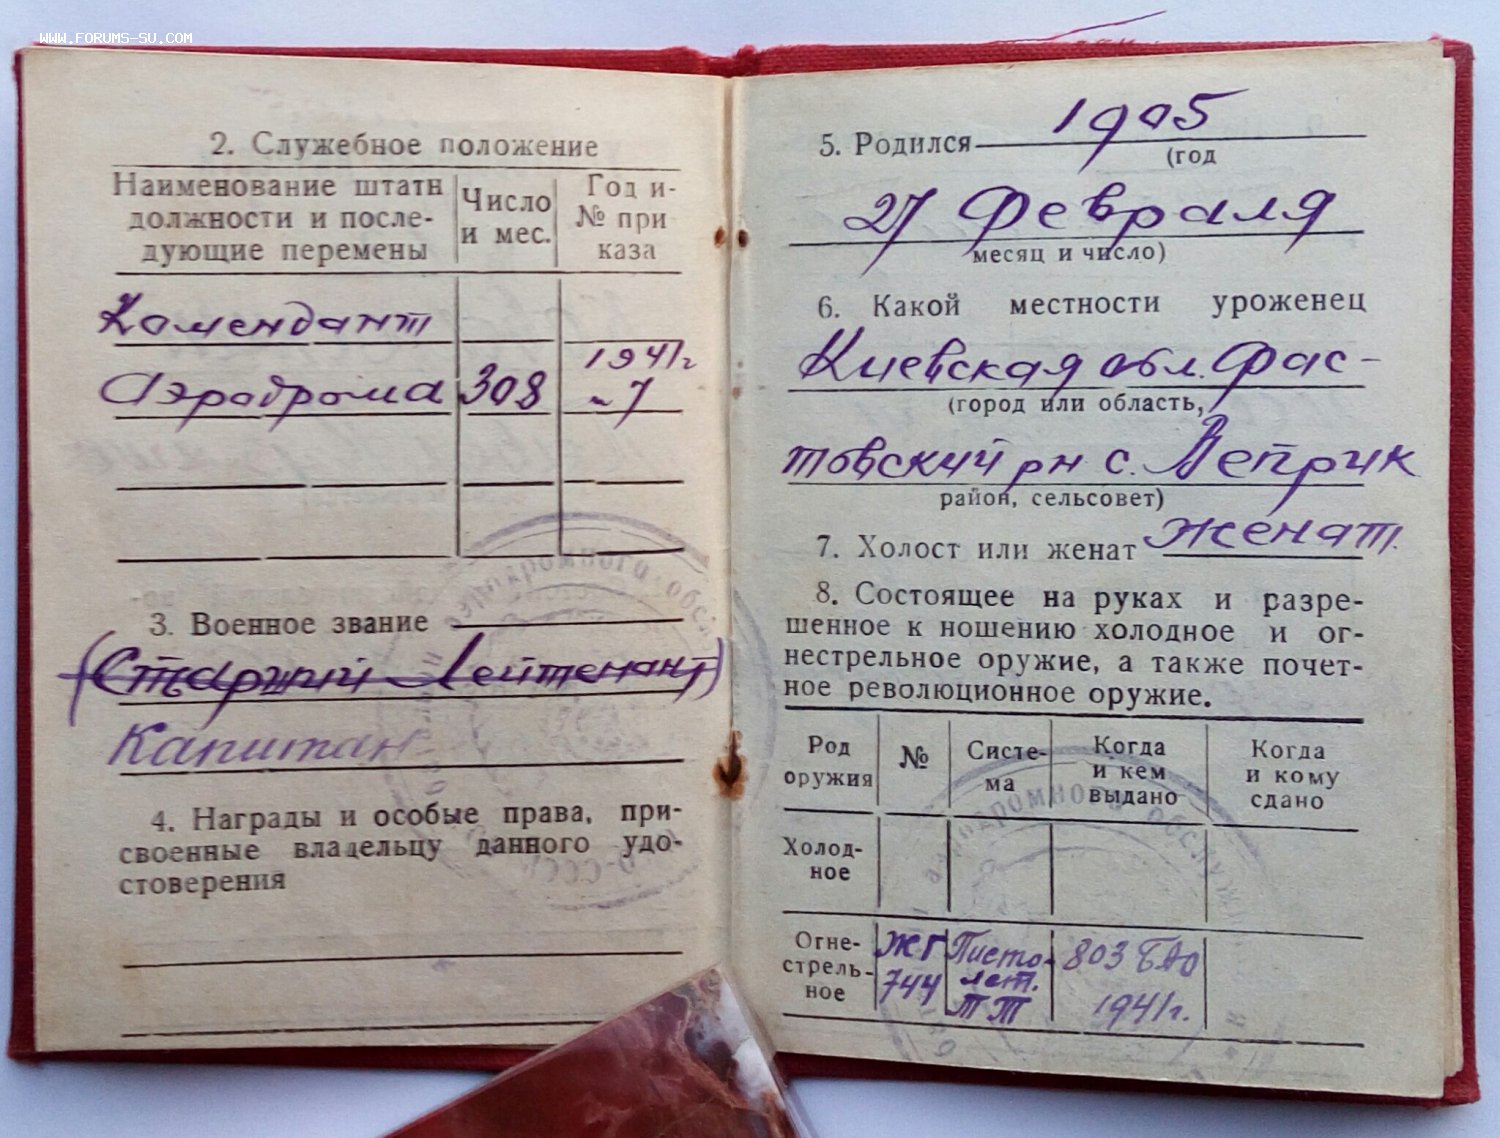 WWW.FORUMS-SU.COM
2. Служебное положение
Наименование штатн
должности и после-
дующие перемены
Число
и мес.
Год и-
№ при
каза
Комендант
Аэродрома 308 1941г
№7
3. Военное звание
(Старший Лейтенант)
Капитан
4. Награды и особые права, при-
своенные владельцу данного удо-
стоверения
5. Родился 1905
(год
27 Февраля
месяц и число)
6. Какой местности уроженец
Киевская обл. Фас-
(город или область,
товский рн с. Веприк
район, сельсовет)
7. Холост или женат женат.
8. Состоящее на руках и разре-
шенное к ношению холодное и ог-
нестрельное оружие, а также почет-
ное революционное оружие.
Род
оружия
№
Систе-
ма
Когда
и кем
выдано
Когда
и кому
сдано
Холод-
ное
Огне-
стрель-
ное
ЖГ
744
Писто-
лет.
ТТ
803 БАО
1941г.